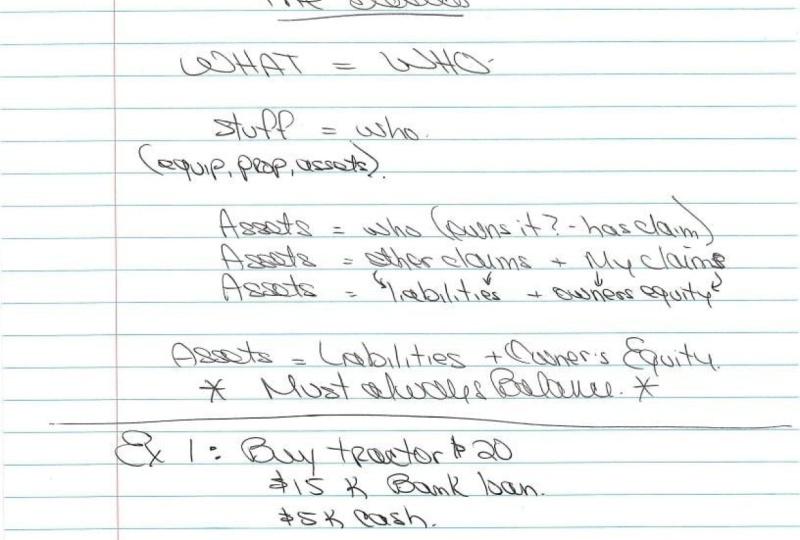 WHAT = WHO
stuff = who.
(equip, prop, assets).
Assets = who (owns it? - has claim)
Assets = other claims + My claims
Assets = "liabilities + owners equity"
Assets = Liabilities + Owner's Equity.
* Must always Balance. *
Ex 1: Buy tractor $20
$15 K Bank loan.
$5K cash.